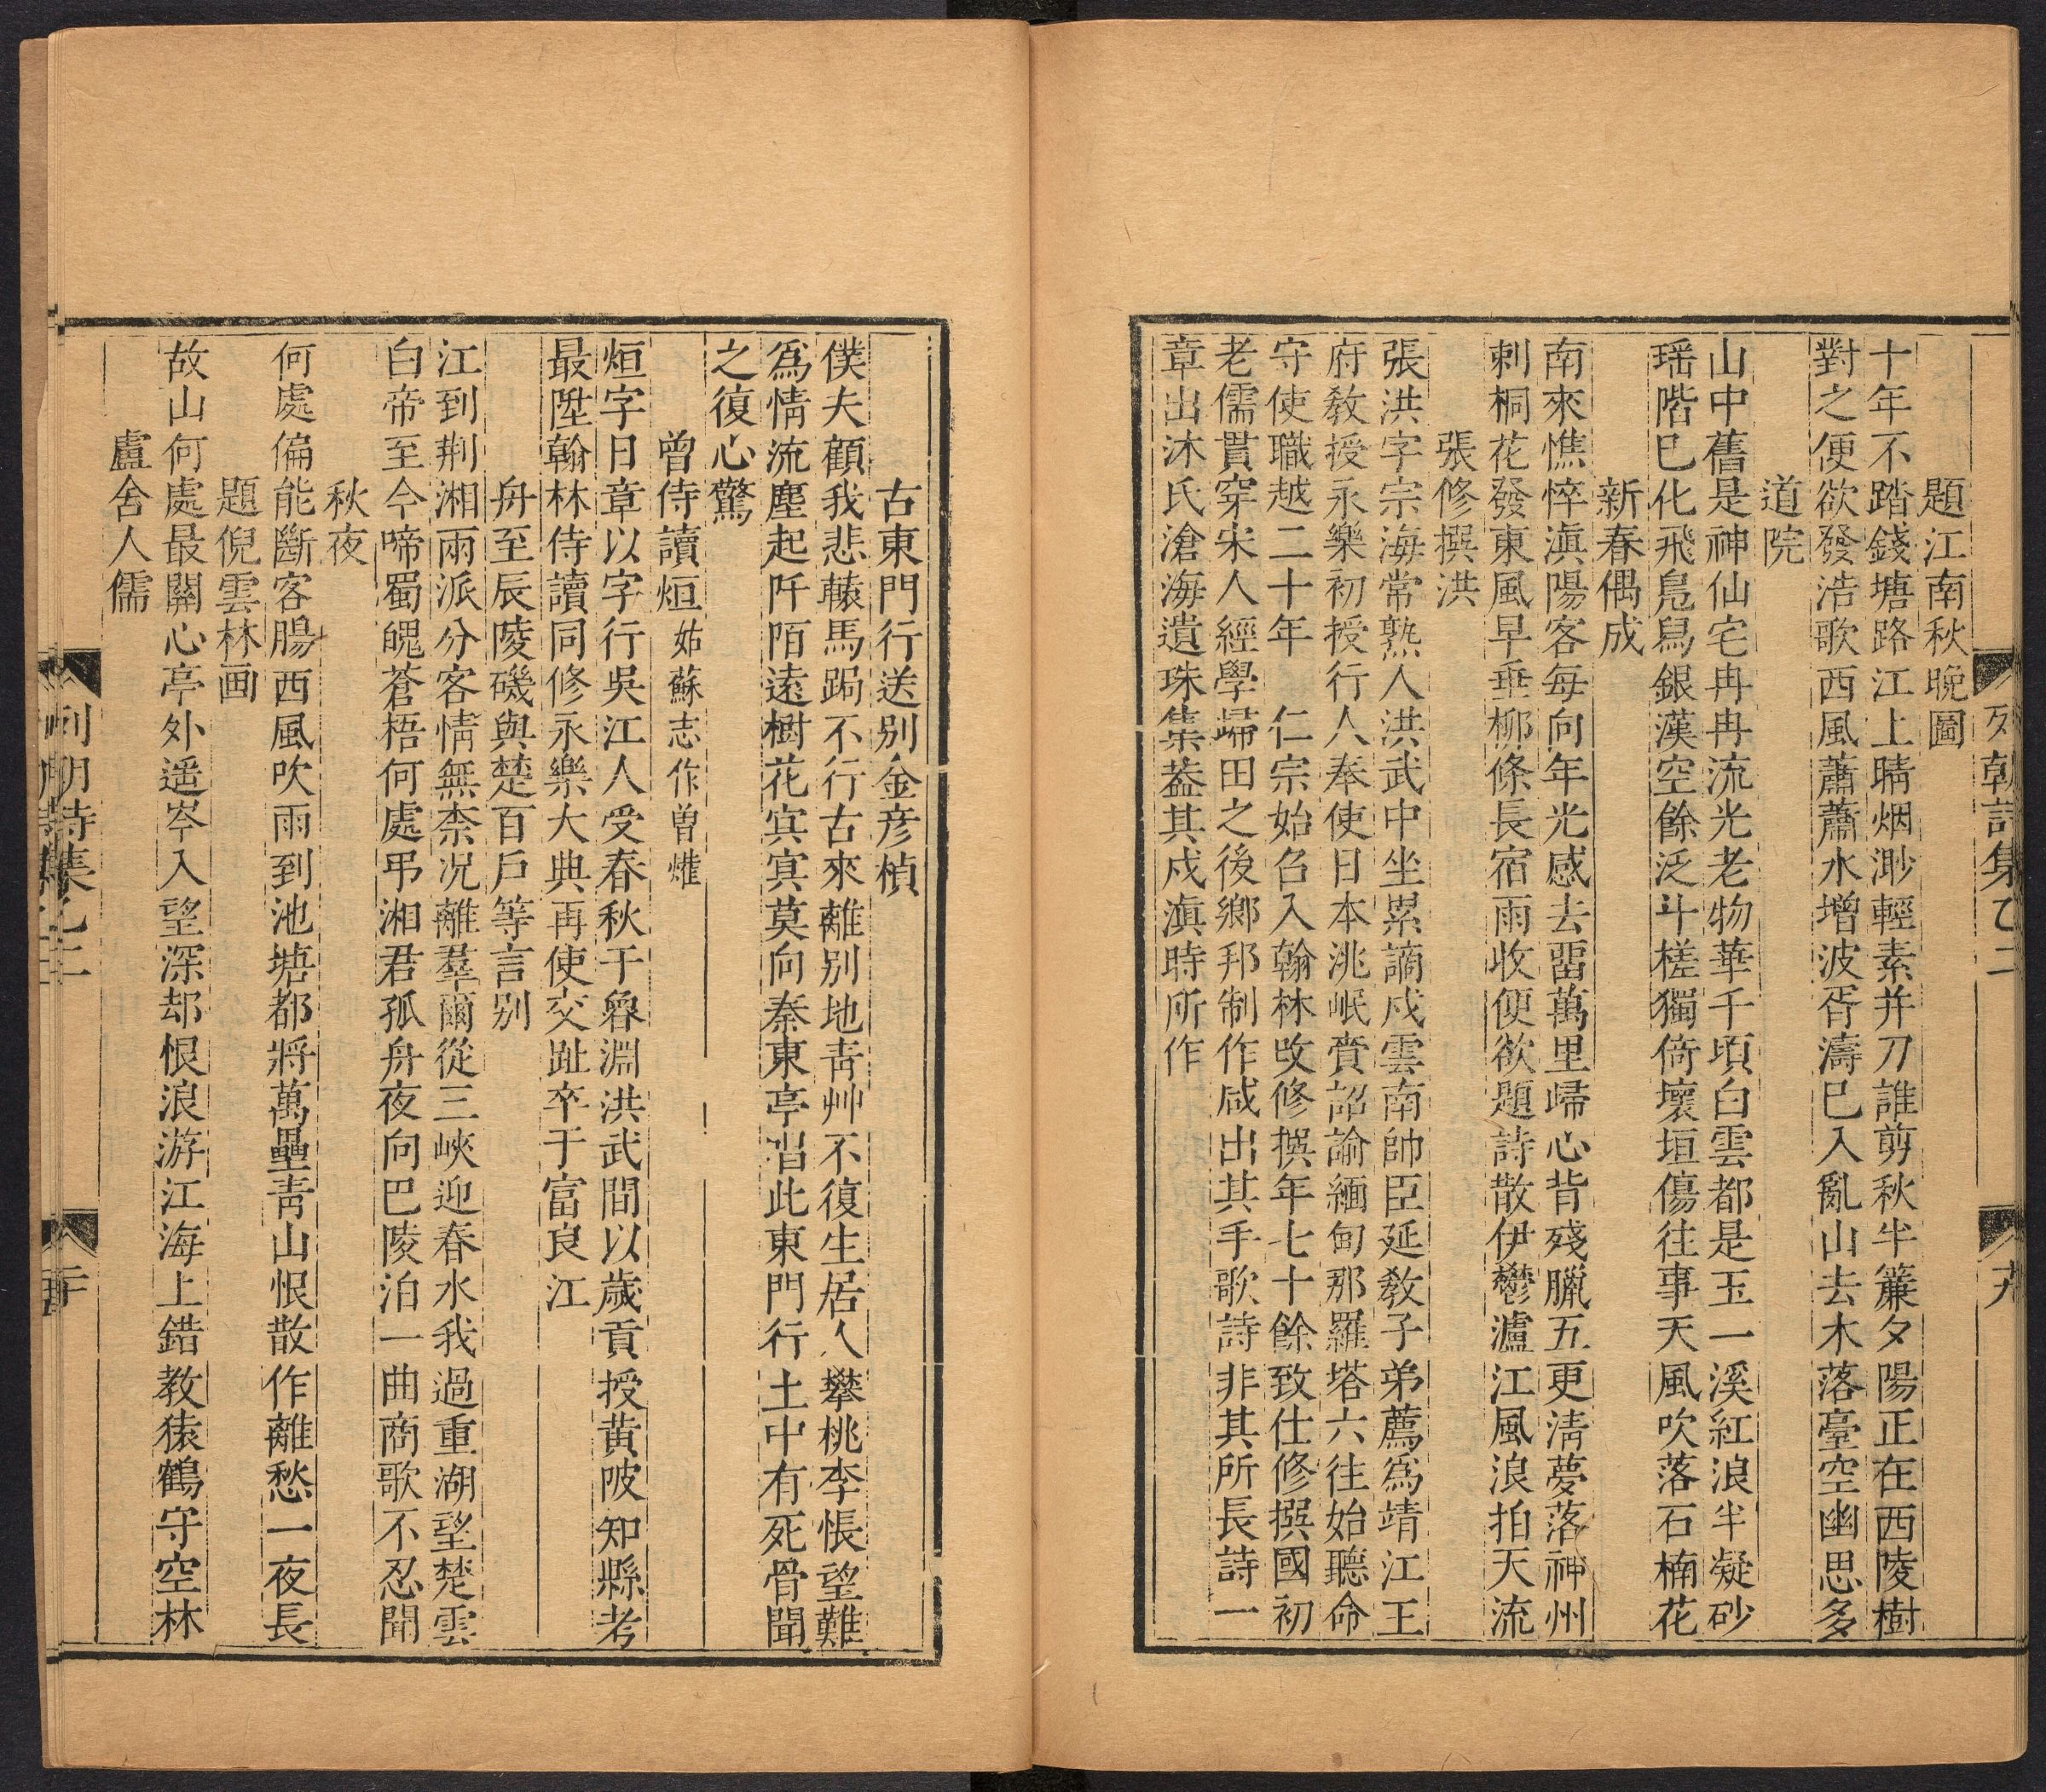 題江南秋晚圖
十年不踏錢塘路江上晴烟渺輕素并刀誰剪秋半簾夕陽正在西陵樹
對之便欲發浩歌西風蕭蕭水增波胥濤已入亂山去木落臺空幽思多
道院
山中舊是神仙宅冉冉流光老物華千頃白雲都是玉一溪紅浪半凝砂
瑶階已化飛鳬舄銀漢空餘泛斗槎獨倚壞垣傷往事天風吹落石楠花
新春偶成
南來憔悴滇陽客每向年光感去畱萬里歸心背殘臘五更淸夢落神州
刺桐花發東風早垂柳條長宿雨收便欲題詩散伊鬱瀘江風浪拍天流
張修撰洪
張洪字宗海常熟人洪武中坐累謫戍雲南帥臣延敎子弟薦爲靖江王
府敎授永樂初授行人奉使日本洮岷賫詔諭緬甸那羅塔六往始聽命
守使職越二十年　仁宗始召入翰林改修撰年七十餘致仕修撰國初
老儒貫穿宋人經學歸田之後鄉邦制作咸出其手歌詩非其所長詩一
章出沐氏滄海遺珠集葢其戍滇時所作
古東門行送别金彦楨
僕夫顧我悲轅馬跼不行古來離别地靑艸不復生居人攀桃李悵望難
爲情流塵起阡陌遠樹花寞寞莫向秦東亭㽞此東門行土中有死骨聞
之復心驚
曾侍讀烜姑蘇志作曾爟
烜字日章以字行吳江人受春秋于魯淵洪武間以歲貢授黄陂知縣考
最陞翰林侍讀同修永樂大典再使交趾卒于富良江
舟至辰陵磯與楚百戶等言别
江到荆湘兩派分客情無柰况離羣爾從三峽迎春水我過重湖望楚雲
白帝至今啼蜀魄蒼梧何處弔湘君孤舟夜向巴陵泊一曲商歌不忍聞
秋夜
何處偏能斷客腸西風吹雨到池塘都將萬壘靑山恨散作離愁一夜長
題倪雲林画
故山何處最關心亭外遥岑入望深却恨浪游江海上錯教猿鶴守空林
盧舍人儒